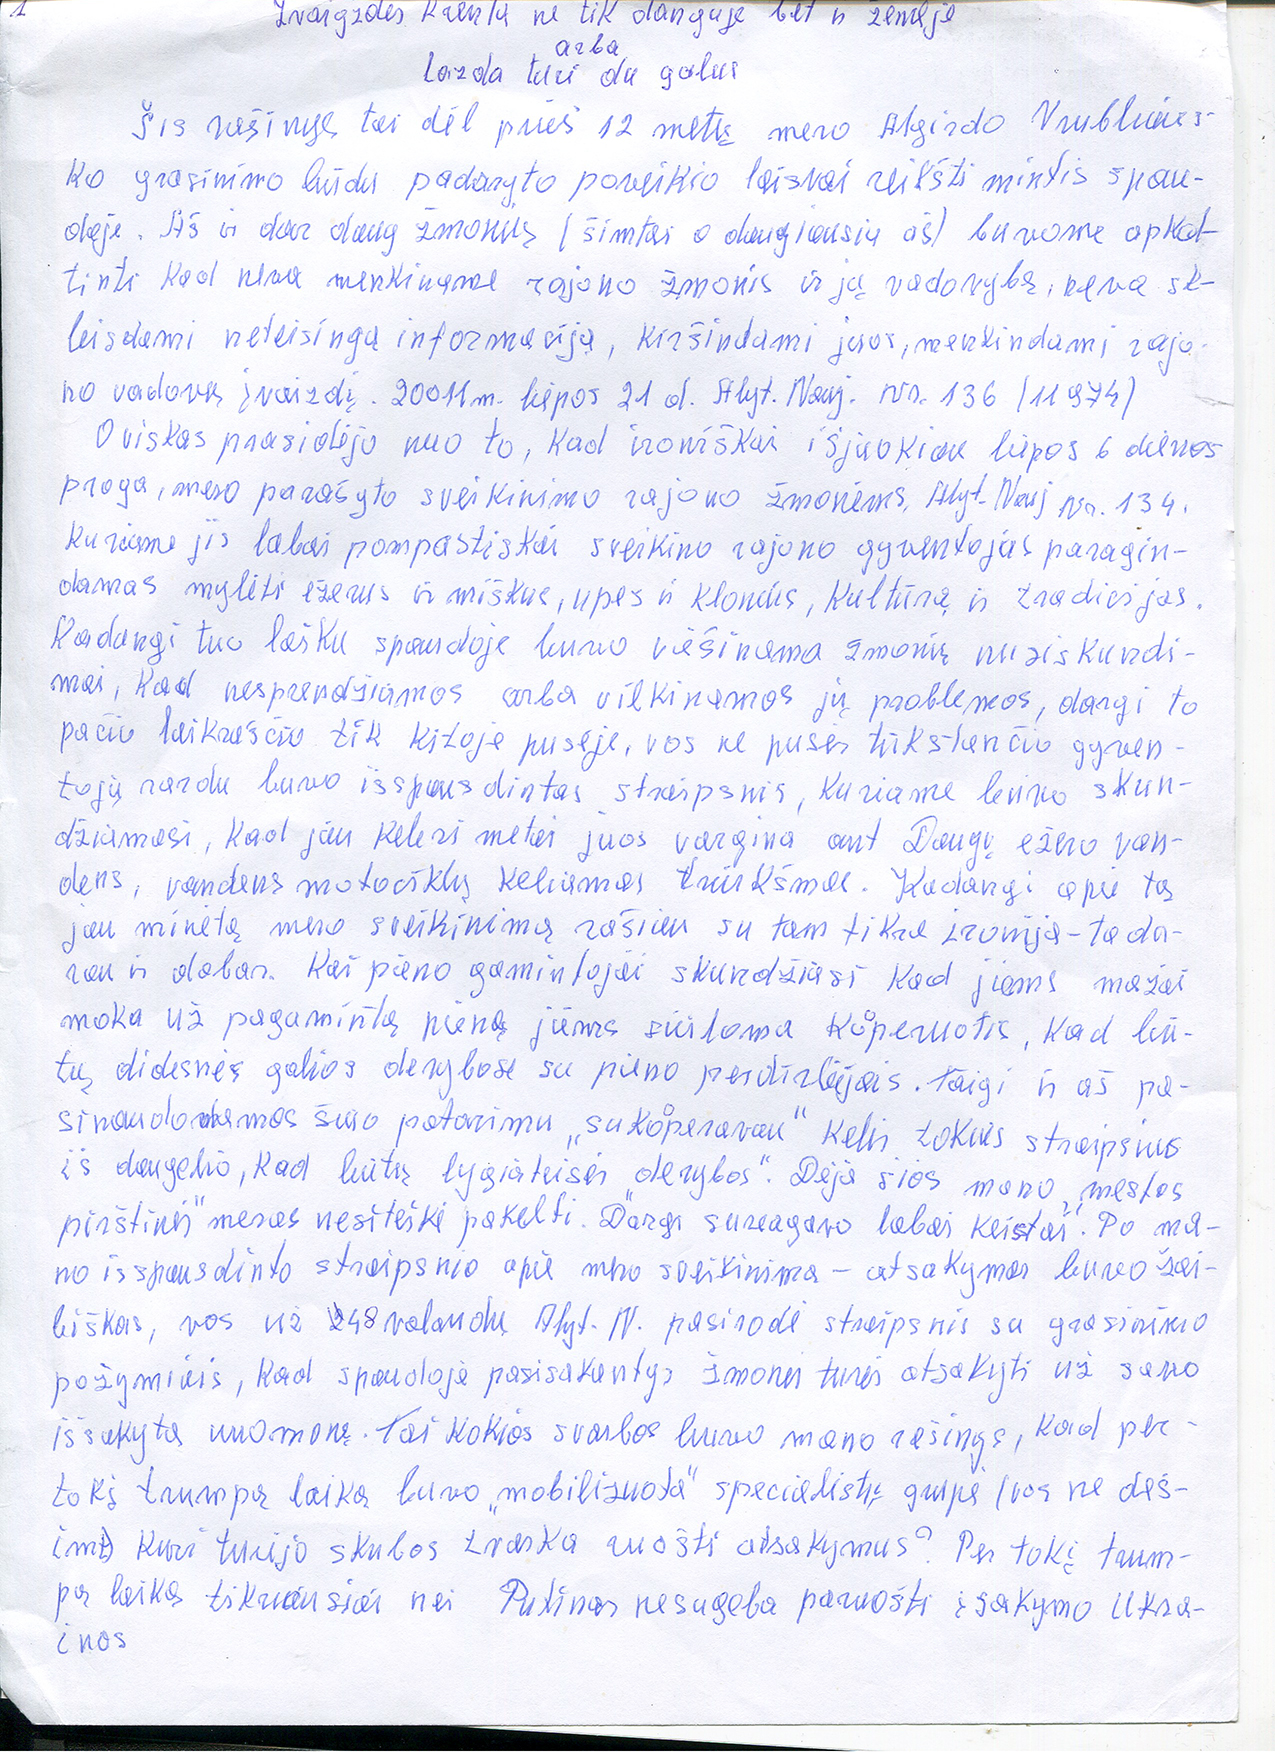 1
Žvaigždės krenta ne tik danguje bet ir žemėje
arba
lazda turi du galus
Šis rašinys tai dėl prieš 12 metų mero Algirdo Vrubliaus-
ko grasinimo būdu padaryto poveikio laisvai reikšti mintis spau-
doje. Aš ir dar daug žmonių (šimtai o daugiausiu aš) buvome apkal-
tinti kad neva menkiname rajono žmonis ir jų vadovybę, neva sk-
leisdami neteisingą informaciją, kiršindami juos, menkindami rajo-
no vadovų įvaizdį. 20011m. liepos 21 d. Alyt. Nauj. nr. 136 (11974)
O viskas prasidėjo nuo to, kad ironiškai išjuokiau liepos 6 dienos
proga, mero parašyto sveikinimo rajono žmonėms, Alyt. Nauj Nr. 134.
kuriame jis labai pompastiškai sveikino rajono gyventojas paragin-
damas mylėti ežerus ir miškus, upes ir klonius, kultūrą ir tradicijas.
Kadangi tuo laiku spaudoje buvo viešinama žmonių nusiskundi-
mai, kad nesprendžiamos arba vilkinamos jų problemos, dargi to
pačio laikraščio tik kitoje pusėje, vos ne pusės tūkstančio gyven-
tojų vardu buvo isspausdintas straipsnis, kuriame buvo skun-
džiamasi, kad jau keleri metai juos vargina ant Daugų ežero van-
dens, vandens motociklų keliamas triukšmas. Kadangi apie tą
jau minėtą mero sveikinimą rašiau su tam tikra ironija - ta da-
rau ir dabar. Kai pieno gamintojai skundžiasi kad jiems mažai
moka už pagamintą pieną jiems siūloma kooperuotis, kad bū-
tų didesnės galios derybose su pieno perdirbėjais. Taigi ir aš pa-
sinaudodamas šiuo patarimu „sukooperavau“ kelis tokius straipsnius
iš daugelio, kad būtų lygiateisės „derybos“. Deja šios mano „mestos
pirštinės“ meras nesiteikė pakelti. Dargi sureagavo labai keistai. Po ma-
no isspausdinto straipsnio apie mero sveikinimą - atsakymas buvo žai-
biškas, vos už 48 valandų Alyt. N. pasirodė straipsnis su grasinimo
požymiais, kad spaudoje pasisakantys žmonės turės atsakyti už savo
išsakytą nuomonę. Tai kokios svarbos buvo mano rašinys, kad per
tokį trumpą laiką buvo „mobilizuota“ specialistų grupė (vos ne deš-
imt) kuri turėjo skubos tvarka ruošti atsakymus? Per tokį trum-
pą laiką tikriausiai nei Putinas nesugeba paruošti įsakymo Ukra-
inos